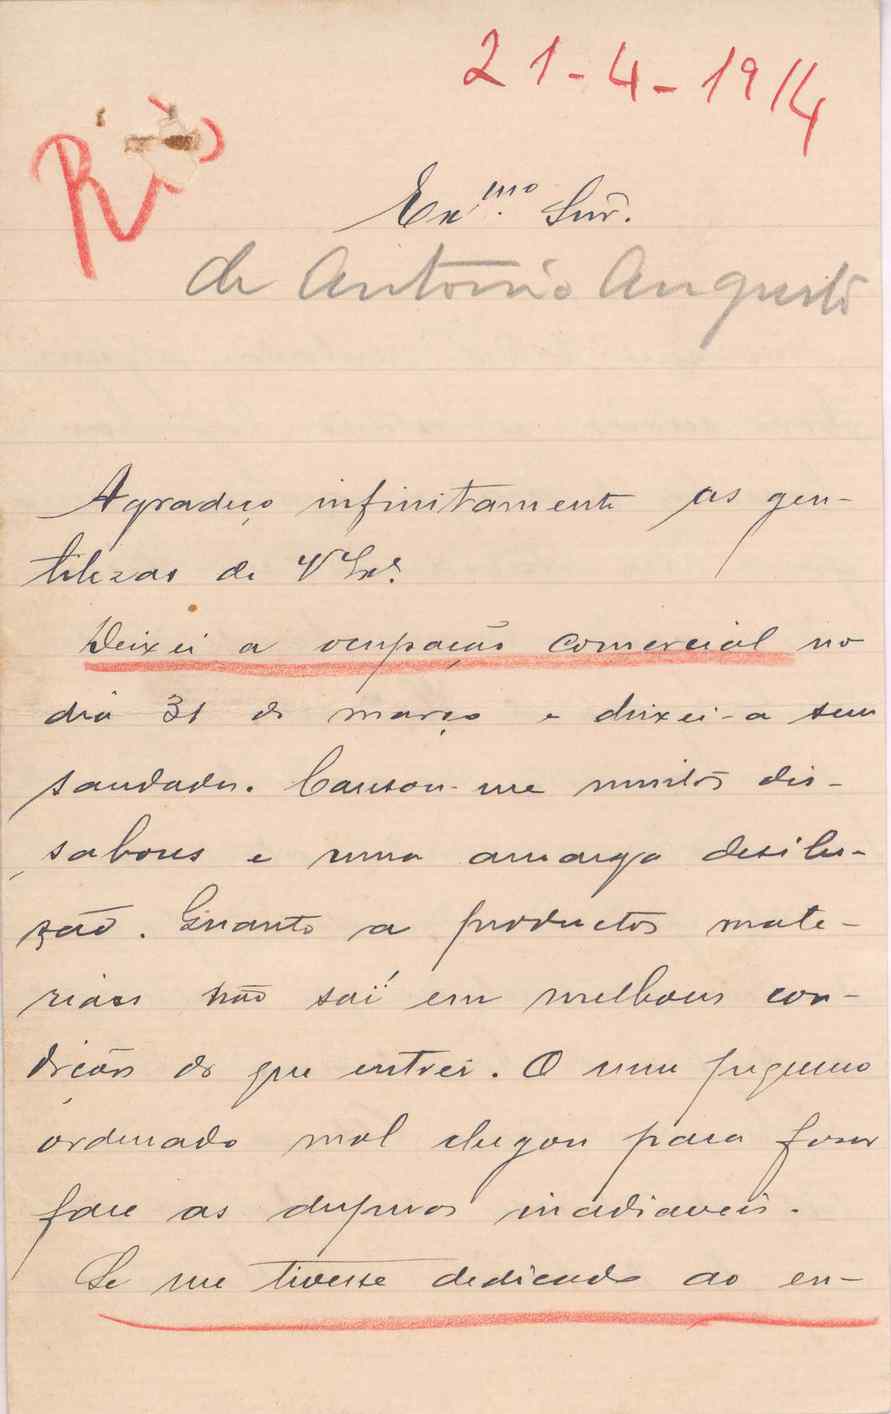 21-4-1914
Rio
Exmo. Snr.
de António Augusto
Agradeço infinitamente as gen-
tilezas de V Exª.
Deixei a ocupação comercial no
dia 31 de março e deixei-a sem
saudades. Causou-me muitos dis-
sabores e uma amarga desilu-
zão. Quanto a productos mate-
riaes não saí em melhores con-
dições do que entrei. O meu pequeno
ordenado mal chegou para fazer
face as despezas inadiaveis.
Se me tivesse dedicado ao en-